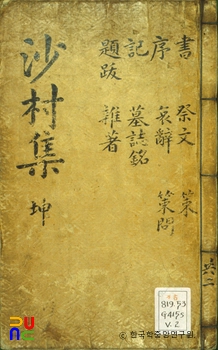 書 祭文 策
序 哀辭 策問
記 墓誌銘
題跋 雜著
沙村集 坤
共二
819.53
V.2
ⓒ한국학중앙연구원